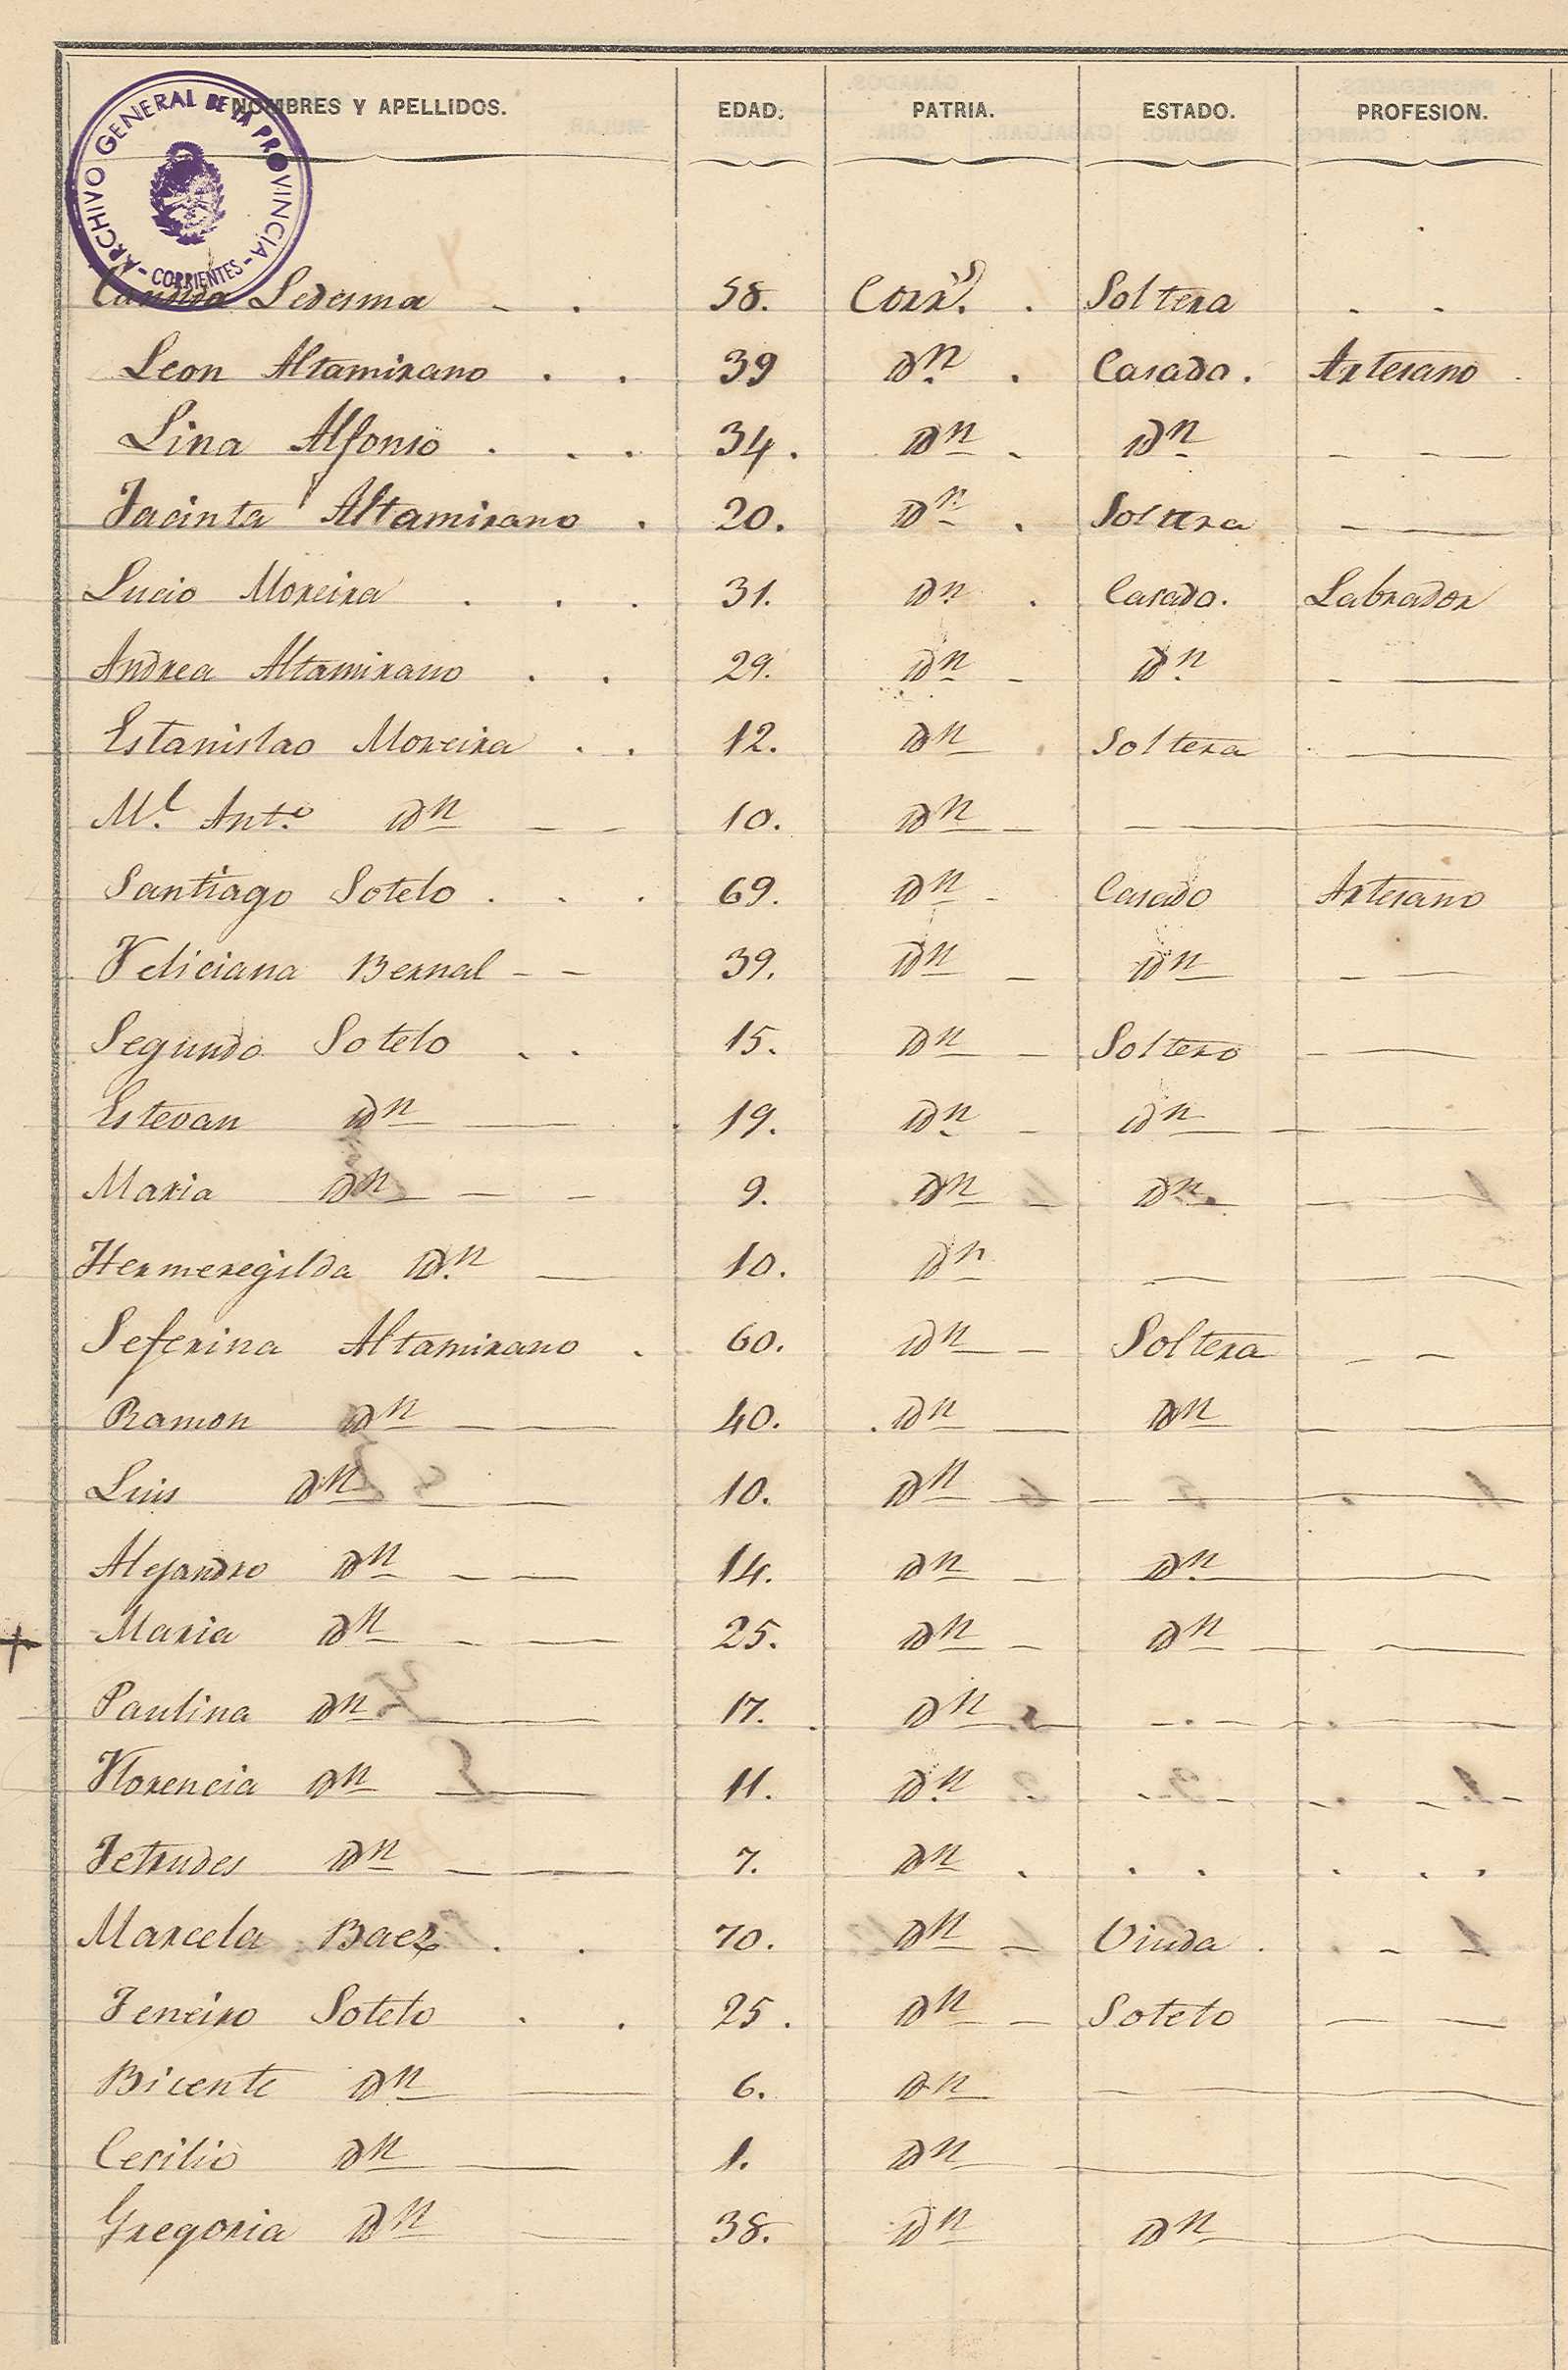 NOMBRES Y APELLIDOS. EDAD. PATRIA. ESTADO. PROFESION.
ARCHIVO GENERAL DE LA PROVINCIA - CORRIENTES -
Candida Ledesma - . 58. Corr.s . Soltera . .
Leon Altamirano . . 39 Dn. . Casado. Artesano .
Lina Alfonso . . . 34. Dn . Dn - — —
Jacinta Altamirano . 20. Dn . Soltera - —
Lucio Moreira . . . 31. Dn . Casado. Labrador
Andrea Altamirano . . 29. Dn - Dn - —
Estanislao Moreira . . 12. Dn . Soltera . —
Ml. Anto. Dn - - 10. Dn - - — —
Santiago Sotelo . . . 69. Dn - Casado Artesano
Feliciana Bernal - - 39. Dn - Dn - —
Segundo Sotelo . . 15. Dn - Soltero - —
Estevan Dn — 19. Dn - Dn — —
Maria Dn - - 9. Dn - Dn. - —
Hermeregilda Dn — 10. Dn — — —
Seferina Altamirano . 60. Dn - Soltera - -
Ramon Dn — — 40. Dn — Dn - —
Luis Dn - — 10. Dn — - — —
Alejandro Dn - — 14. Dn - Dn —
Maria Dn - — 25. Dn - Dn — —
Paulina Dn — 17. Dn — - . - . — —
Florencia Dn — 11. Dn . - - - - -
Jetrudes Dn - — 7. Dn . . . . . .
Marcela Baez . . 70. Dn - Viuda . . -
Jeneiro Sotelo . . 25. Dn - Sotelo — —
Bicente Dn — 6. Dn - — —
Cesilio Dn — 1. Dn — —
Gregoria Dn — 38. Dn Dn —